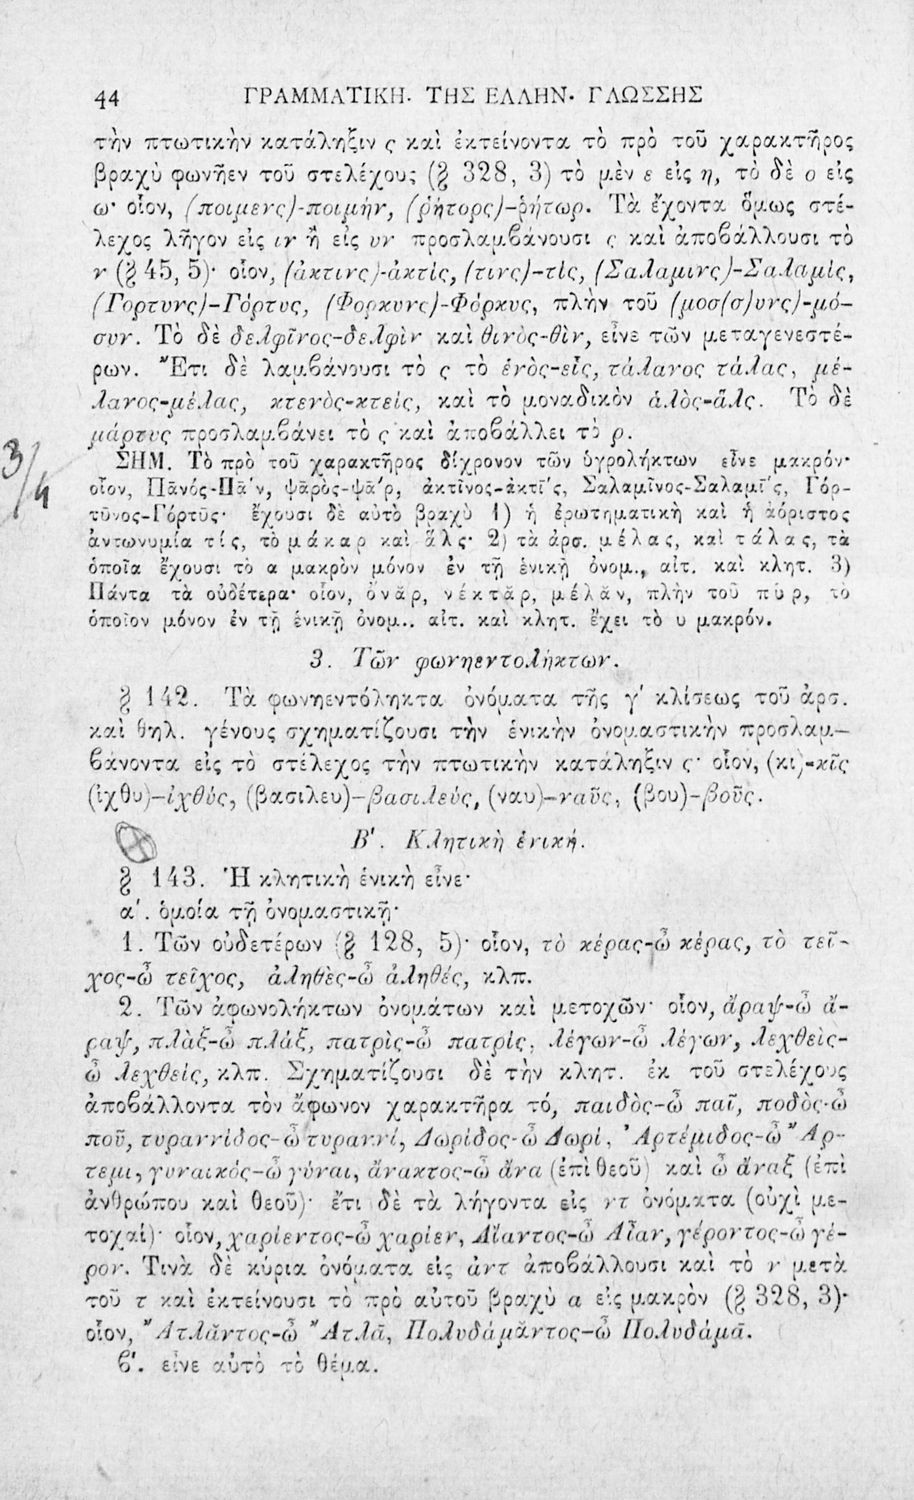 44 ΓΡΑΜΜΑΤΙΚΗ· ΤΗΣ ΕΛΛΗΝ· ΓΛΩΣΣΗΣ
τὴν πτωτικὴν κατάληξιν ς καὶ ἐκτείνοντα τὸ πρὸ τοῦ χαρακτῆρος
βραχὺ φωνῆεν τοῦ στελέχους (§ 328, 3) τὸ μὲν ε εἰς η, τὸ δὲ ο εἰς
ω· οἷον, (ποιμενς)-ποιμήν, (ῥήτορς)-ῥήτωρ. Τὰ ἔχοντα ὅμως στέ-
λεχος λῆγον εἰς ιν ἢ εἰς υν προσλαμβάνουσι ς καὶ ἀποβάλλουσι τὸ
ν (§ 45, 5)· οἷον, (ἀκτινς)-ἀκτίς, (τινς)-τὶς, (Σαλαμινς)-Σαλαμὶς,
(Γορτυνς)-Γόρτυς, (Φορκυνς)-Φόρκυς, πλὴν τοῦ (μοσ(σ)υνς)-μό-
συν. Τὸ δὲ δελφῖνος-δελφὶν καὶ θινὸς-θὶν, εἶνε τῶν μεταγενεστέ-
ρων. Ἔτι δὲ λαμβάνουσι τὸ ς τὸ ἑνὸς-εἷς, τάλανος τάλας, μέ-
λανος-μέλας, κτενὸς-κτεὶς, καὶ τὸ μοναδικὸν ἁλὸς-ἅλς. Τὸ δὲ
μάρτυς προσλαμβάνει τὸ ς καὶ ἀποβάλλει τὸ ρ.
3/4
ΣΗΜ. Τὸ πρὸ τοῦ χαρακτῆρος δίχρονον τῶν ὑγρολήκτων εἶνε μακρόν·
οἷον, Πᾱνός-Πᾱ́ν, ψᾱρὸς-ψᾱ́ρ, ἀκτῖνος-ἀκτῑ́ς, Σαλαμῖνος-Σαλαμῑ́ς, Γόρ-
τῡνος-Γόρτῡς· ἔχουσι δὲ αὐτὸ βραχὺ 1) ἡ ἐρωτηματικὴ καὶ ἡ ἀόριστος
ἀντωνυμία τίς, τὸ μάκαρ καὶ ἅλς· 2) τὰ ἀρσ. μέλας, καὶ τάλας, τὰ
ὁποῖα ἔχουσι τὸ α μακρὸν μόνον ἐν τῇ ἑνικῇ ὀνομ., αἰτ. καὶ κλητ. 3)
Πάντα τὰ οὐδέτερα· οἷον, ὄνᾰρ, νέκτᾰρ, μέλᾰν, πλὴν τοῦ πῦρ, τὸ
ὁποῖον μόνον ἐν τῇ ἑνικῇ ὀνομ.. αἰτ. καὶ κλητ. ἔχει τὸ υ μακρόν.
3. Τῶν φωνηεντολήκτων.
§ 142. Τὰ φωνηεντόληκτα ὀνόματα τῆς γ' κλίσεως τοῦ ἀρσ.
καὶ θηλ. γένους σχηματίζουσι τὴν ἑνικὴν ὀνομαστικὴν προσλαμ-
βάνοντα εἰς τὸ στέλεχος τὴν πτωτικὴν κατάληξιν ς· οἷον, (κι)-κῖς
(ἰχθυ)-ἰχθύς, (βασιλευ)-βασιλεύς, (ναυ)-ναῦς, (βου)-βοῦς.
Β'. Κλητικὴ ἑνική.
§ 143. Ἡ κλητικὴ ἑνικὴ εἶνε·
α'. ὁμοία τῇ ὀνομαστικῇ·
1. Τῶν οὐδετέρων (§ 128, 5)· οἷον, τὸ κέρας-ὦ κέρας, τὸ τεῖ-
χος-ὦ τεῖχος, ἀληθὲς-ὦ ἀληθές, κλπ.
2. Τῶν ἀφωνολήκτων ὀνομάτων καὶ μετοχῶν· οἷον, ἄραψ-ὦ ἄ-
ραψ, πλὰξ-ὦ πλάξ, πατρὶς-ὦ πατρίς, λέγων-ὦ λέγων, λεχθεὶς-
ὦ λεχθείς, κλπ. Σχηματίζουσι δὲ τὴν κλητ. ἐκ τοῦ στελέχους
ἀποβάλλοντα τὸν ἄφωνον χαρακτῆρα τό, παιδὸς-ὦ παῖ, ποδὸς-ὦ
ποῦ, τυραννίδος-ὦ τυραννί, Δωρίδος-ὦ Δωρί, Ἀρτέμιδος-ὦ Ἄρ-
τεμι, γυναικὸς-ὦ γύναι, ἄνακτος-ὦ ἄνα (ἐπὶ θεοῦ) καὶ ὦ ἄναξ (ἐπὶ
ἀνθρώπου καὶ θεοῦ)· ἔτι δὲ τὰ λήγοντα εἰς ντ ὀνόματα (οὐχὶ με-
τοχαί)· οἷον, χαρίεντος-ὦ χαρίεν, Αἴαντος-ὦ Αἶαν, γέροντος-ὦ γέ-
ρον. Τινὰ δὲ κύρια ὀνόματα εἰς ἀντ ἀποβάλλουσι καὶ τὸ ν μετὰ
τοῦ τ καὶ ἐκτείνουσι τὸ πρὸ αὐτοῦ βραχὺ α εἰς μακρὸν (§ 328, 3)·
οἷον, Ἄτλᾰντος-ὦ Ἄτλᾱ, Πολυδάμᾰντος-ὦ Πολυδάμᾱ.
β'. εἶνε αὐτὸ τὸ θέμα.